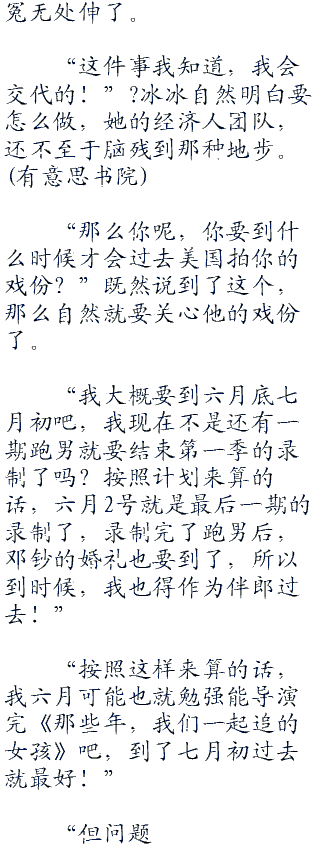 冤无处伸了。
“这件事我知道，我会
交代的！”?冰冰自然明白要
怎么做，她的经济人团队，
还不至于脑残到那种地步。
(有意思书院)
“那么你呢，你要到什
么时候才会过去美国拍你的
戏份？”既然说到了这个，
那么自然就要关心他的戏份
了。
“我大概要到六月底七
月初吧，我现在不是还有一
期跑男就要结束第一季的录
制了吗？按照计划来算的
话，六月2号就是最后一期的
录制了，录制完了跑男后，
邓钞的婚礼也要到了，所以
到时候，我也得作为伴郎过
去！”
“按照这样来算的话，
我六月可能也就勉强能导演
完《那些年，我们一起追的
女孩》吧，到了七月初过去
就最好！”
“但问题